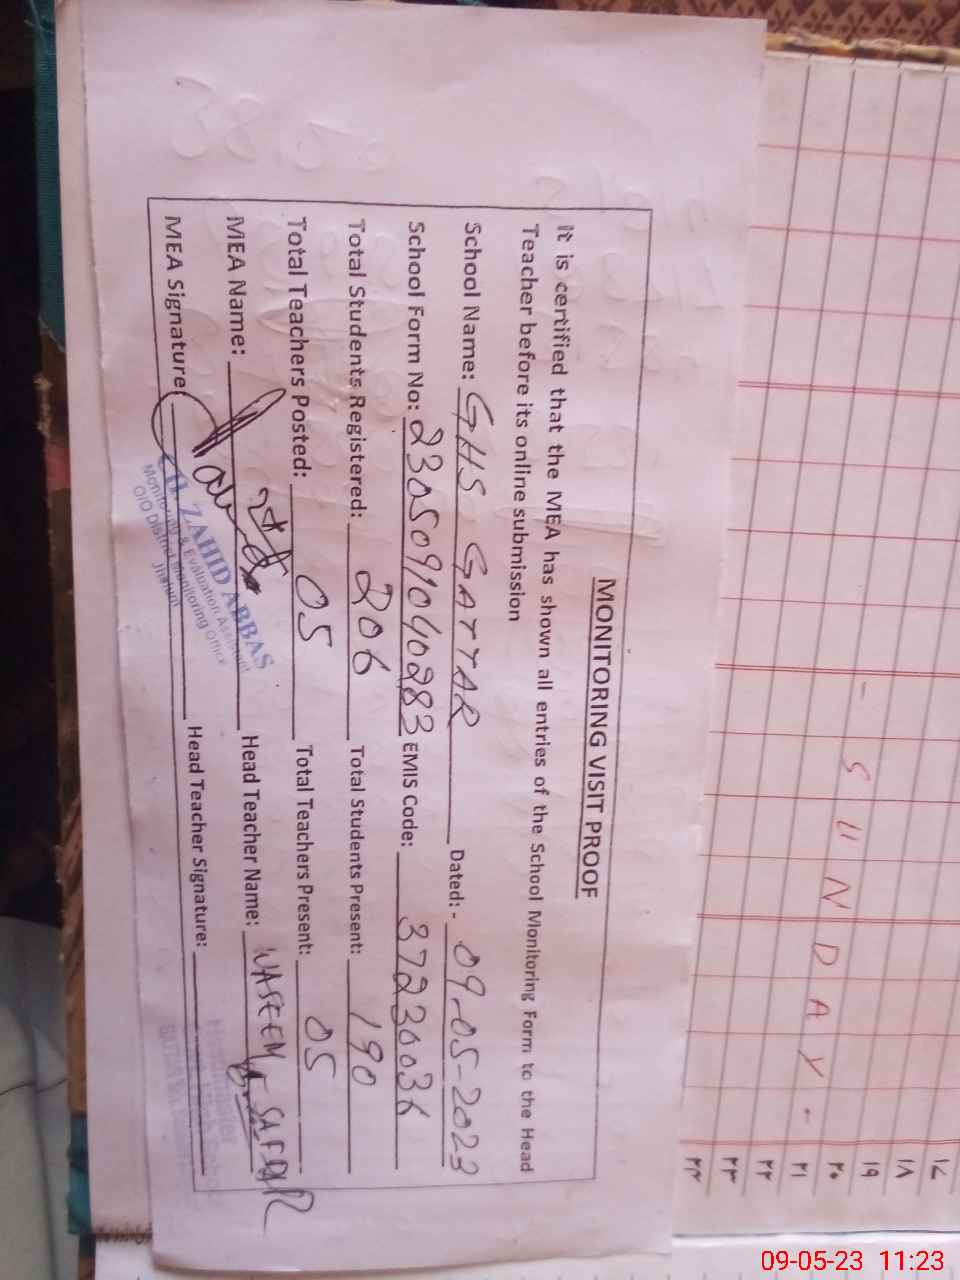 MONITORING VISIT PROOF
It is certified that the MEA has shown all entries of the School Monitoring Form to the Head
Teacher before its online submission
School Name: GHS SATTAR Dated:- 09-05-2023
School Form No: 230509104028 3 EMIS Code: 37230036
Total Students Registered: 206 Total Students Present: 190
Total Teachers Posted: 05 Total Teachers Present: 05
MEA Name: Head Teacher Name: WASEEM SAFDAR
MEA Signature: Head Teacher Signature:
ZAHID ABBAS
Monitoring & Evaluation Assistant
O/O District Monitoring Office
Jhang
- SUNDAY -
١٧
١٨
١٩
٢٠
٢١
٢٢
٢٣
٢٤
09-05-23 11:23